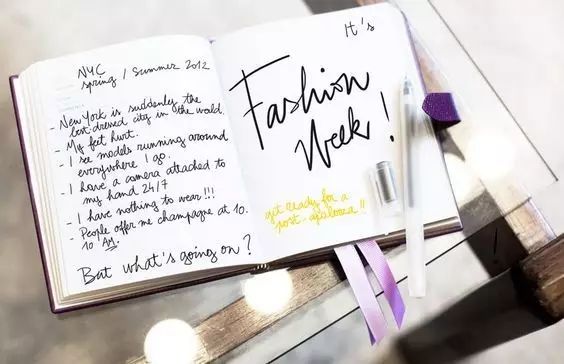 NYC
spring / summer 2012
- New York is suddenly the
best dressed city in the world.
- My feet hurt.
- I see models running around
everywhere I go.
- I have a camera attached to
my hand 24/7
- I have nothing to wear!!!
- People offer me champagne at 10.
10 AM.
But what's going on?
It's
Fashion
Week!
get ready for a
post-apalooza!!